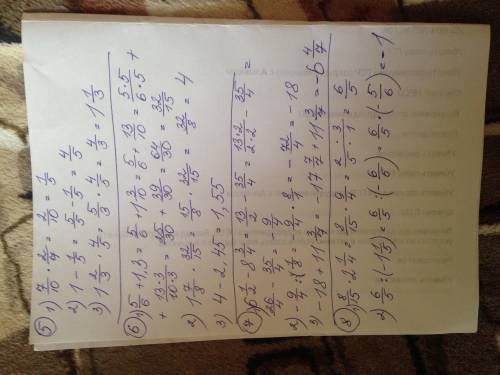 5) 1) 7/10 · 2/7 = 2/10 = 1/5
2) 1 - 1/5 = 5/5 - 1/5 = 4/5
3) 1 2/3 · 4/5 = 5/3 · 4/5 = 4/3 = 1 1/3
6) 1) 5/6 + 1,3 = 5/6 + 1 3/10 = 5/6 + 13/10 = 5·5/6·5 +
+ 13·3/10·3 = 25/30 + 39/30 = 64/30 = 32/15
2) 1 7/8 · 32/15 = 15/8 · 32/15 = 32/8 = 4
3) 4 - 2,45 = 1,55
7) 1) 6 1/2 - 8 3/4 = 13/2 - 35/4 = 13·2/2·2 - 35/4 =
26/4 - 35/4 = - 9/4
2) - 9/4 : 1/8 = - 9/4 · 8/1 = - 72/4 = -18
3) -18 + 11 3/7 = -17 7/7 + 11 3/7 = -6 4/7
8) 1) 8/15 · 2 1/4 = 8/15 · 9/4 = 2·3/5·1 = 6/5
2) 6/5 : (-1 1/5) = 6/5 : (- 6/5) = 6/5 · (- 5/6) = -1